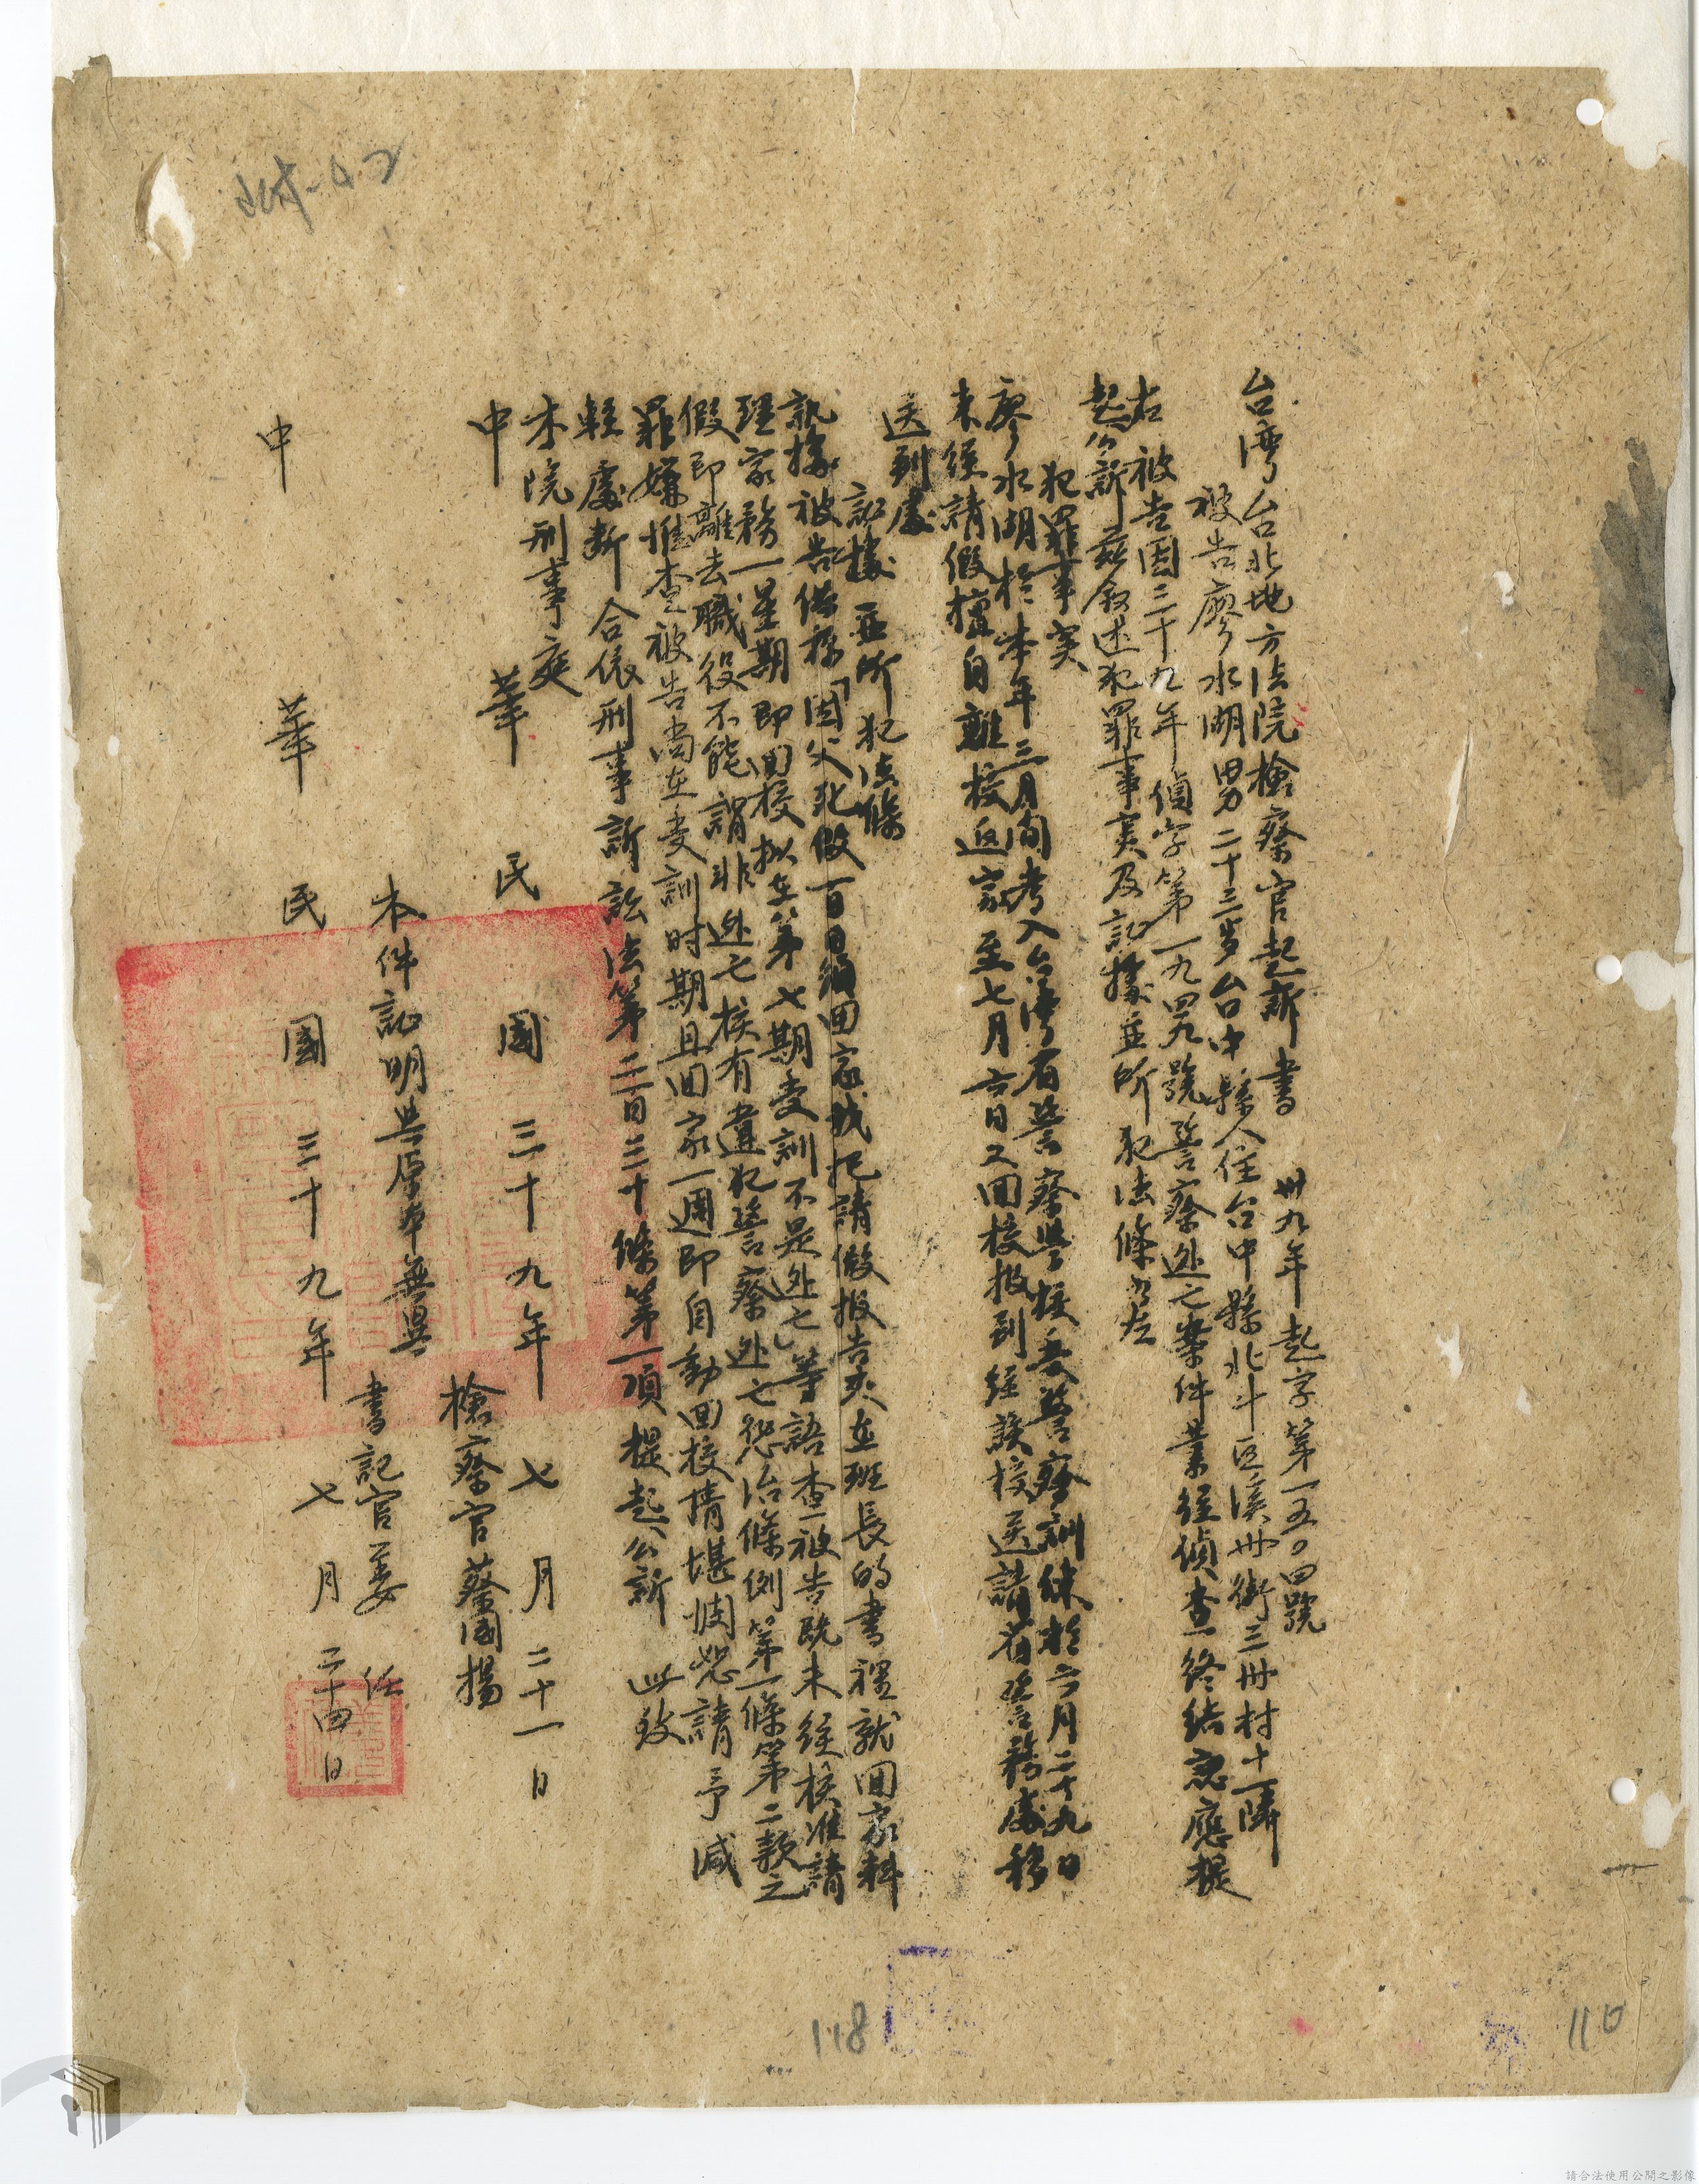 附-42
台灣台北地方法院檢察官起訴書　卅九年起字第一五〇四號
被告廖水湖男二十三岁台中縣人住台中縣北斗區溪州街三州村十一隣
右被告因三十九年偵字第一九四九號警察逃亡案件業經偵查終結認應提
起公訴茲敘述犯罪事实及記據並所犯法條如左
犯罪事实
廖水湖於本年三月间考入台灣省警察學校受警察訓練於六月二十九日
未經請假擅自離校返家至七月六日又回校报到經該校送請省警務處移
送到處
記據並所犯法條
訊據被告供称「因父死做百日須回家我把請假报告夾在班長的書裡就回家料
理家務一星期即回校拟在第七期受訓不是逃亡」等語查被告既未經核准請
假即離去職役不能謂非逃亡核有違犯警察逃亡惩治條例第一條第二款之
罪嫌惟查被告尚在受訓时期且回家一週即自動回校情堪憫恕請予减
輕處断合依刑事訴訟法第二百三十條第一項提起公訴　此致
本院刑事庭
中華民國三十九年七月二十一日
檢察官蔡國揚
本件記明與原本無異
書記官姜　任
中華民國三十九年七月二十四日
118
110
請合法使用公開之影像